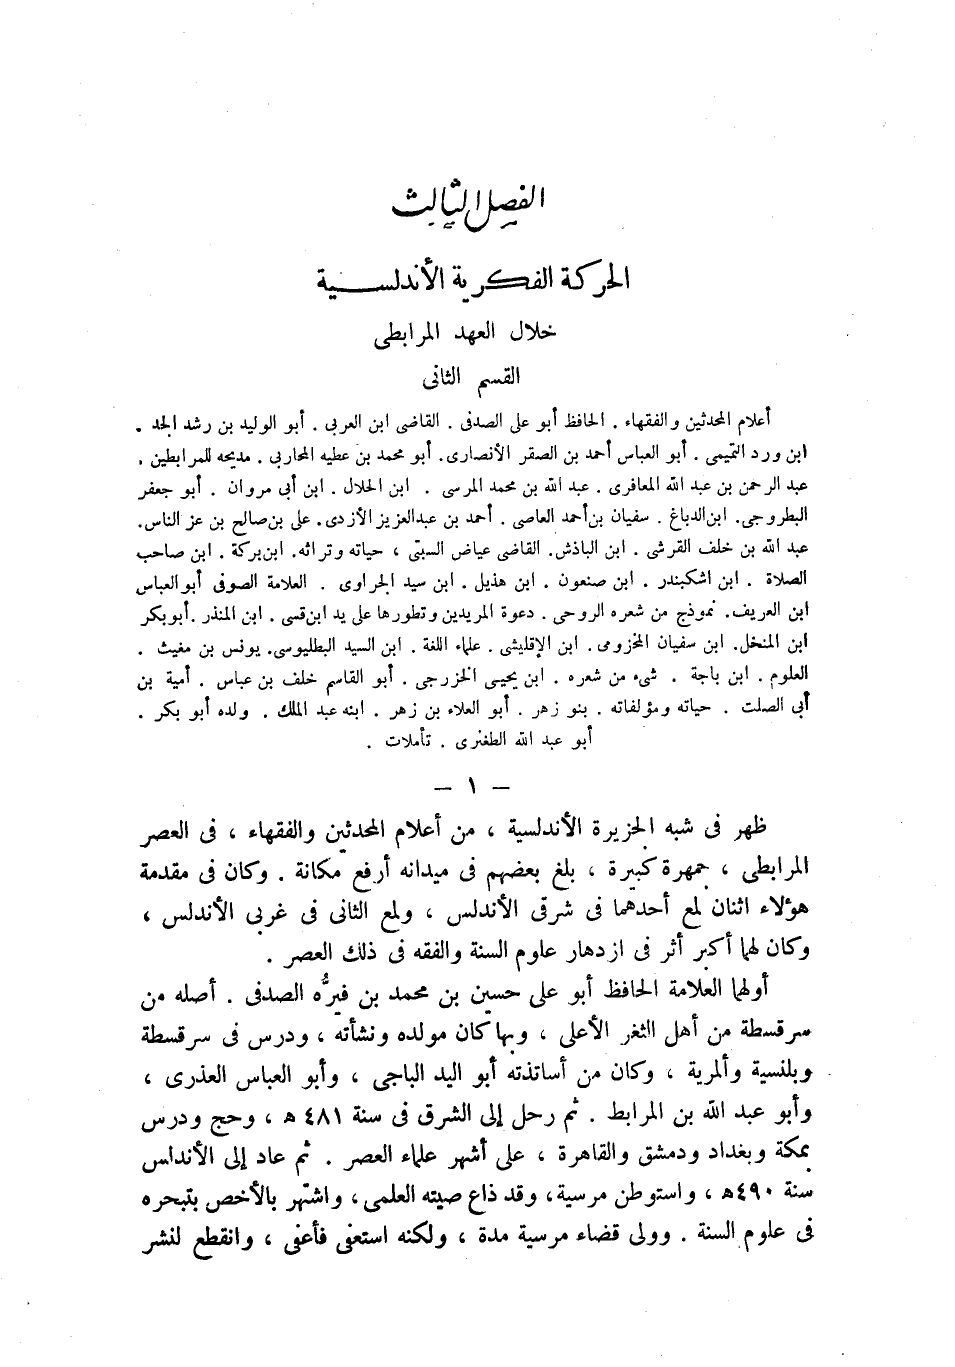 الفصل الثالث
الحركة الفكرية الأندلسية
خلال العهد المرابطى
القسم الثانى
أعلام المحدثين والفقهاء . الحافظ أبو على الصدفى . القاضى ابن العربى . أبو الوليد بن رشد الجد .
ابن ورد التميمى . أبو العباس أحمد بن الصقر الأنصارى. أبو محمد بن عطيه المحاربى . مديحه للمرابطين .
عبد الرحمن بن عبد الله المعافرى . عبد الله بن محمد المرسى . ابن الخلال . ابن أبى مروان . أبو جعفر
البطروجى. ابن الدباغ . سفيان بن أحمد العاصى . أحمد بن عبدالعزيز الأزدى. على بن صالح بن عز الناس.
عبد الله بن خلف القرشى . ابن الباذش. القاضى عياض السبتى ، حياته وتراثه. ابن بركة . ابن صاحب
الصلاة . ابن اشكبندر . ابن صنعون . ابن هذيل . ابن سيد الجراوى . العلامة الصوفى أبو العباس
ابن العريف. نموذج من شعره الروحى . دعوة المريدين وتطورها على يد ابن قسى . ابن المنذر . أبو بكر
ابن المنخل. ابن سفيان المخزومى . ابن الإقليشى . علماء اللغة . ابن السيد البطليوسى. يونس بن مغيث .
العلوم . ابن باجة . شىء من شعره . ابن يحيى الخزرجى . أبو القاسم خلف بن عباس . أمية بن
أبى الصلت . حياته ومؤلفاته . بنو زهر . أبو العلاء بن زهر . ابنه عبد الملك . ولده أبو بكر .
أبو عبد الله الطغنرى . تأملات .
— ١ —
ظهر فى شبه الجزيرة الأندلسية ، من أعلام المحدثين والفقهاء ، فى العصر
المرابطى ، جمهرة كبيرة ، بلغ بعضهم فى ميدانه أرفع مكانة . وكان فى مقدمة
هؤلاء اثنان لمع أحدهما فى شرقى الأندلس ، ولمع الثانى فى غربى الأندلس ،
وكان لهما أكبر أثر فى ازدهار علوم السنة والفقه فى ذلك العصر .
أولهما العلامة الحافظ أبو على حسين بن محمد بن فيرُّه الصدفى . أصله من
سرقسطة من أهل الثغر الأعلى ، وبها كان مولده ونشأته ، ودرس فى سرقسطة
وبلنسية وألمرية ، وكان من أساتذته أبو اليد الباجى ، وأبو العباس العذرى ،
وأبو عبد الله بن المرابط . ثم رحل إلى الشرق فى سنة ٤٨١ ه ، وحج ودرس
بمكة وبغداد ودمشق والقاهرة ، على أشهر علماء العصر . ثم عاد إلى الأندلس
سنة ٤٩٠ه ، واستوطن مرسية، وقد ذاع صيته العلمى، واشتهر بالأخص بتبحره
فى علوم السنة . وولى قضاء مرسية مدة ، ولكنه استعفى فأعفى ، وانقطع لنشر